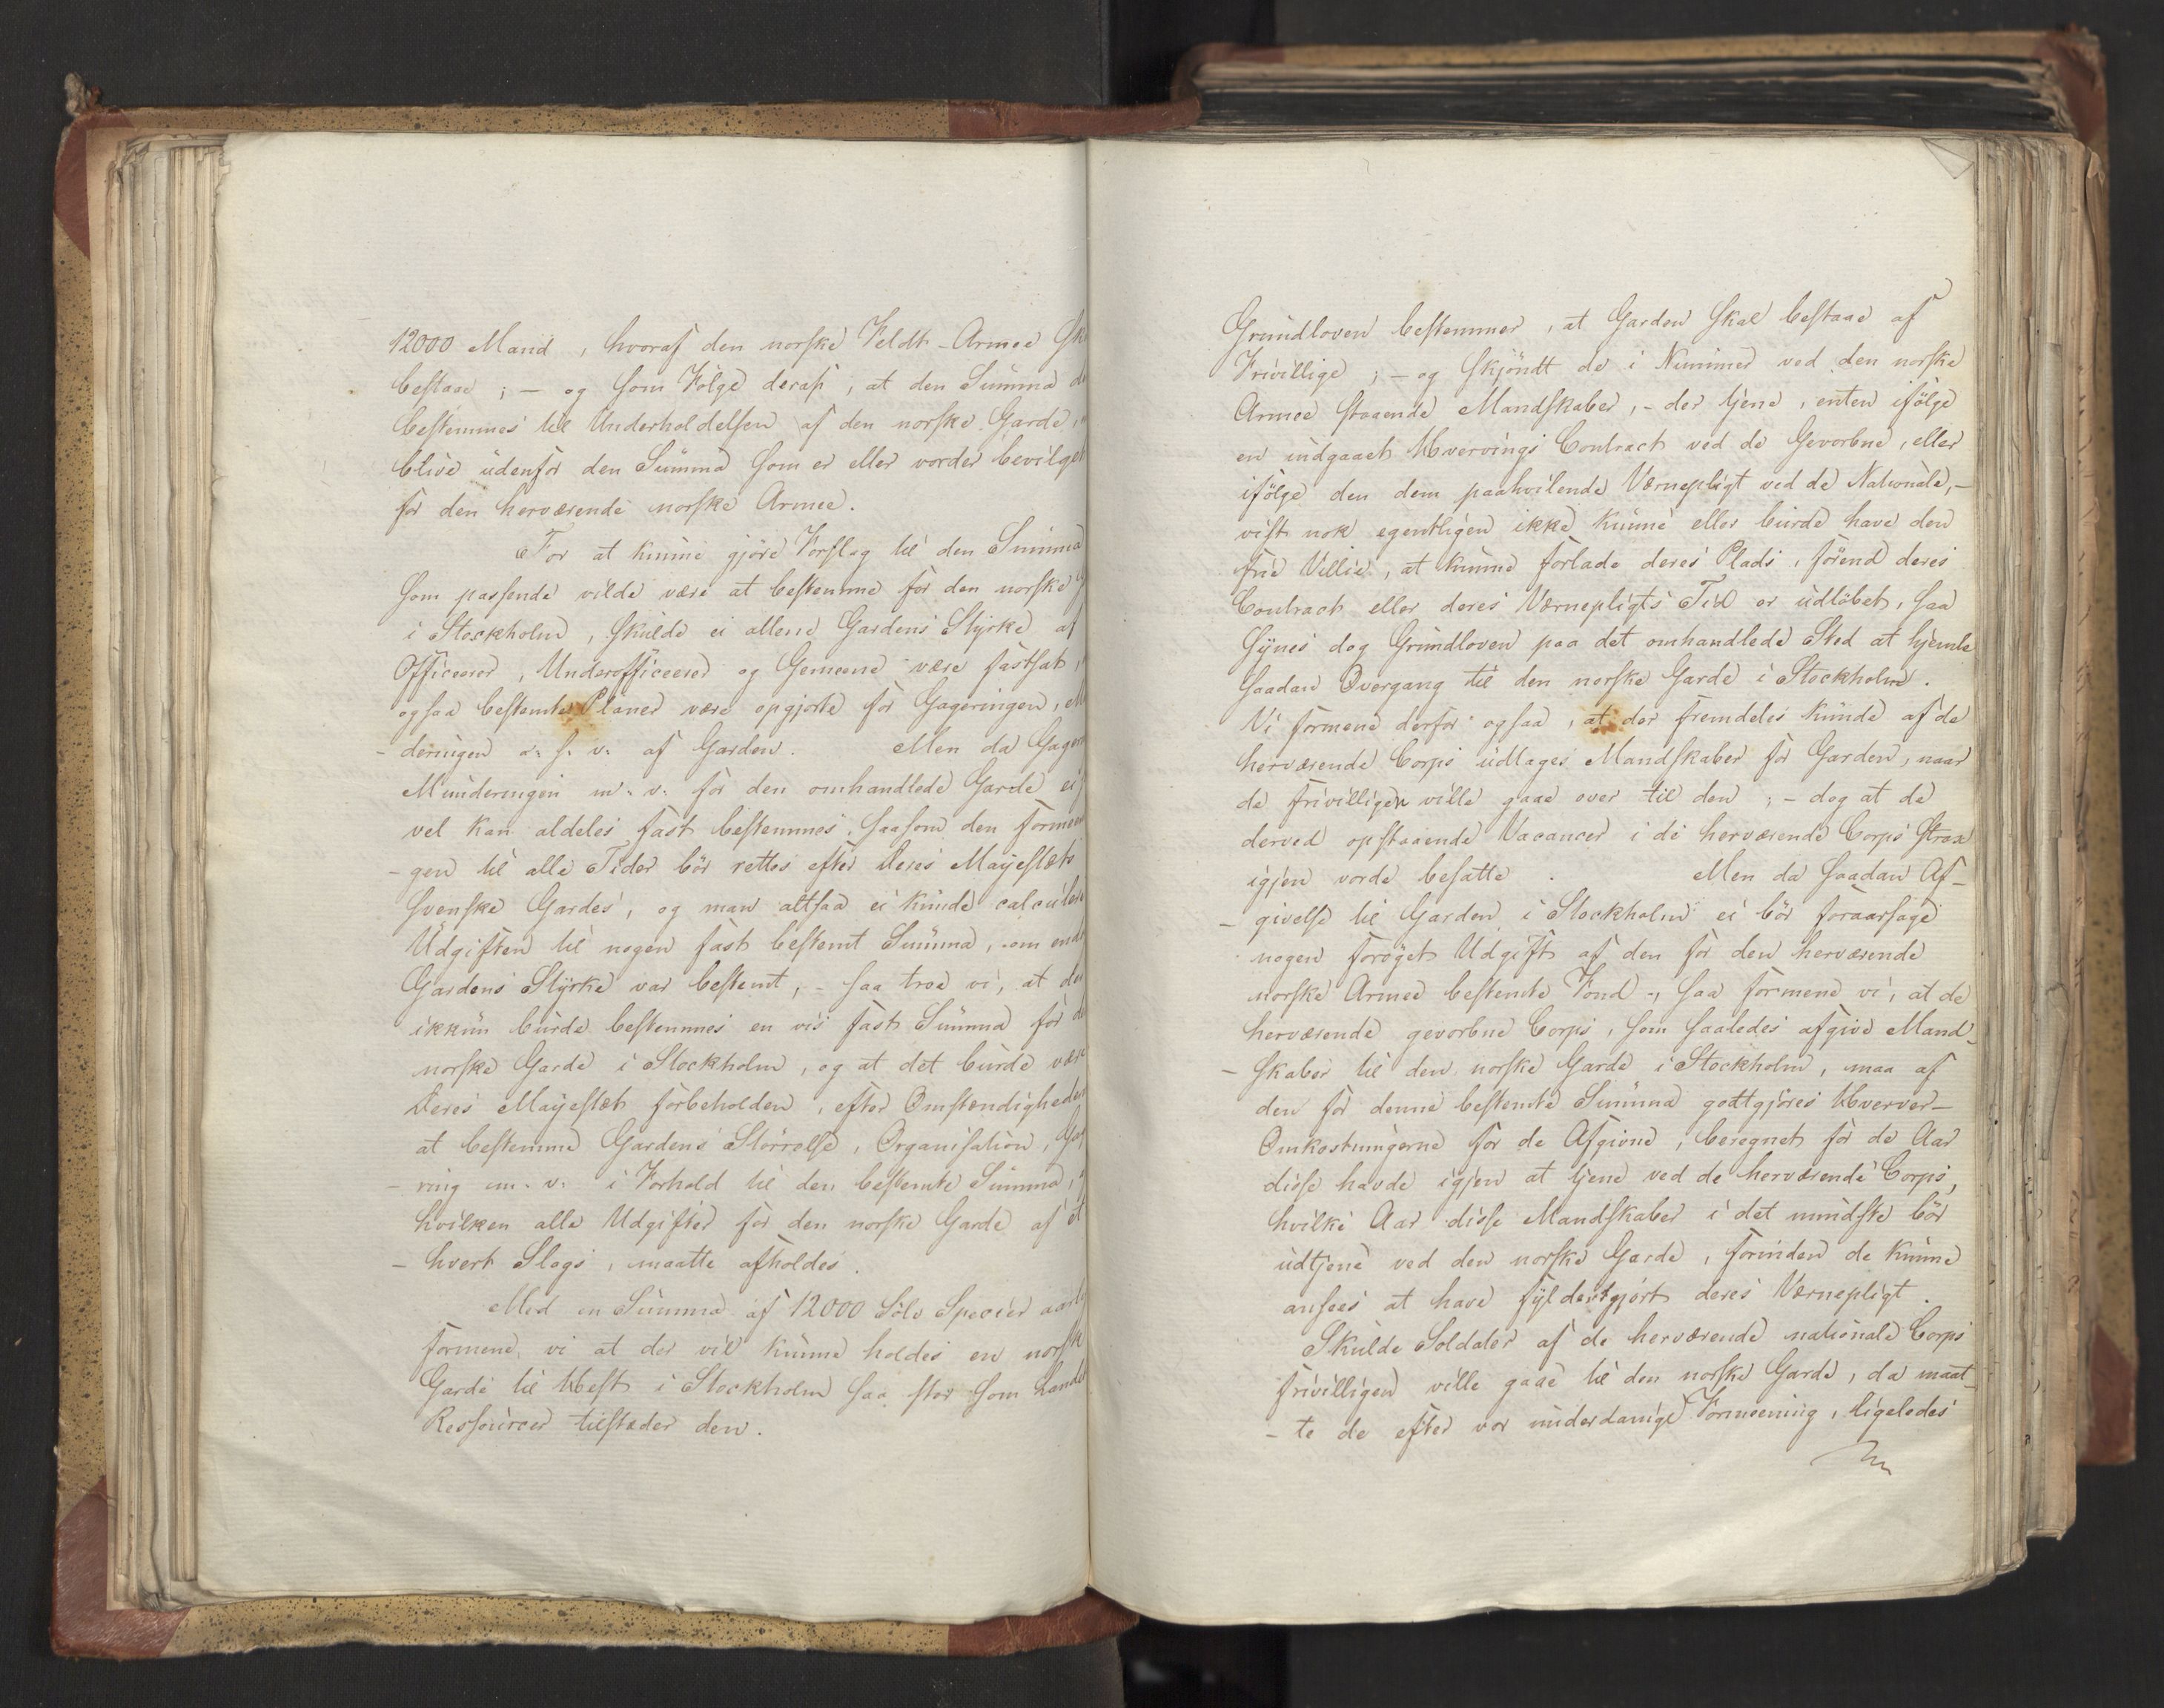 12000 Mand, hvoraf den norske Feldt-Armee sk
bestaae; – og som Følge deraf, at den Summa d
bestemmes til Underholdelsen af den norske Garde,
blive udenfor den Summa som er eller vorder bevilget
for den herværende norske Armee.
For at kunne gjøre Forslag til den Summa
som passende vilde være at bestemme for den norske G
i Stockholm, skulde ei allene Gardens Styrke af
Officerer, Underofficeerer og Gemeene være fastsat,
ogsaa bestemte Planer være opgjorte for Gageringen, M
- deringen o. s. v. af Garden. Men da Gager
Munderingen m. v. for den omhandlede Garde ej
vel kan aldeles fast bestemmes, saasom den formeen
- gen til alle Tider bør rettes efter Deres Mayestæts
svenske Gardes, og man altsaa ei kunde calculere
Udgiften til nogen fast bestemt Summa, om endt
Gardens Styrke var bestemt, – saa troe vi, at der
ikkun burde bestemmes en vis fast Summa for d
norske Garde i Stockholm, og at det burde være
Deres Mayestæt forbeholden, efter Omstændigheder
at bestemme Gardens Størrelse, Organisation, Gag
- ring m. v. i Forhold til den bestemte Summa,
hvilken alle Udgifter for den norske Garde af et
- hvert Slags, maatte afholdes.
Med en Summa af 12000 Sølv Specier aarli
formene vi at der vil kunne holdes en norsk
Garde til Hest i Stockholm saa stor som Lande
Ressourcer tilsteder den.
Grundloven bestemmer, at Garden skal bestaae af
Frivillige; – og skjöndt de i Nummer ved den norske
Armee staaende Mandskaber, – der tjene, enten ifölge
en indgaaet Hvervings Contract ved de Gevorbne, eller
ifölge den dem paahvilende Værnepligt ved de Nationale, –
vist nok egentligen ikke kunne eller burde have den
frie Villie, at kunne forlade deres Plads, förend deres
Contract eller deres Værnepligts Tid er udlöbet, saa
synes dog Grundloven paa det omhandlede Sted at hjemle
saadan Overgang til den norske Garde i Stockholm.
Vi formene derfor ogsaa, at der fremdeles kunde af de
herværende Corps udtages Mandskaber for Garden, naar
de frivilligen ville gaae over til den; – dog at de
derved opstaaende Vacancer i de herværende Corps strax
igjen vorde besatte. Men da saadan Af-
- givelse til Garden i Stockholm ei bör foraarsage
nogen foröget Udgift af den for den herværende
norske Armee bestemte Fond –, saa formene vi, at de
herværende gevorbne Corps, som saaledes afgive Mand-
- skaber til den norske Garde i Stockholm, maa af
den for denne bestemte Summa godtgjöres Hverver-
Omkostningerne for de Afgivne, beregnet for de Aar
disse havde igjen at tjene ved de herværende Corps,
hvilke Aar disse Mandskaber i det mindste bör
udtjene ved den norske Garde, forinden de kunne
ansees at have fyldestgjort deres Værnepligt.
Skulde Soldater af de herværende nationale Corps
frivilligen ville gaae til den norske Garde, da maat-
- te de efter vor underdanige Formeening, ligeledes